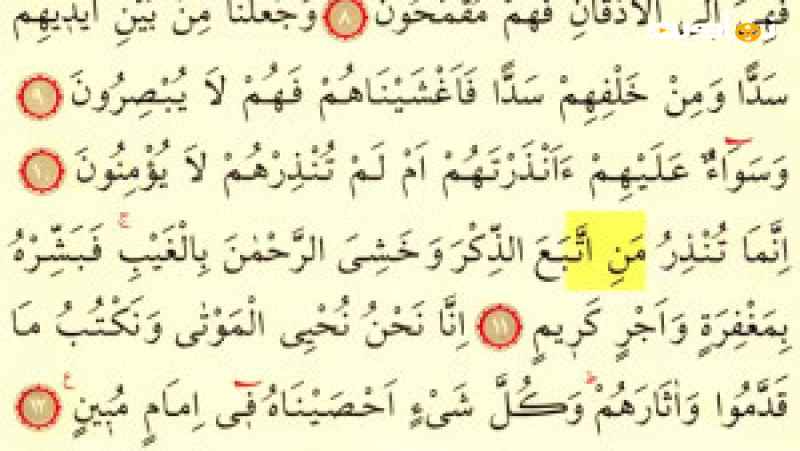 فَهِىَ اِلَى الْاَذْقَانِ فَهُمْ مُقْمَحُونَ ﴿٨﴾ وَجَعَلْنَا مِنْ بَيْنِ اَيْدٖيهِمْ
سَدًّا وَمِنْ خَلْفِهِمْ سَدًّا فَاَغْشَيْنَاهُمْ فَهُمْ لَا يُبْصِرُونَ ﴿٩﴾
وَسَوَٓاءٌ عَلَيْهِمْ ءَاَنْذَرْتَهُمْ اَمْ لَمْ تُنْذِرْهُمْ لَا يُؤْمِنُونَ ﴿١٠﴾
اِنَّمَا تُنْذِرُ مَنِ اتَّبَعَ الذِّكْرَ وَخَشِىَ الرَّحْمٰنَ بِالْغَيْبِۚ فَبَشِّرْهُ
بِمَغْفِرَةٍ وَاَجْرٍ كَرٖيمٍ ﴿١١﴾ اِنَّا نَحْنُ نُحْيِى الْمَوْتٰى وَنَكْتُبُ مَا
قَدَّمُوا وَاٰثَارَهُمْؕ وَكُلَّ شَىْءٍ اَحْصَيْنَاهُ فٖٓى اِمَامٍ مُبٖينٍ ﴿١٢﴾